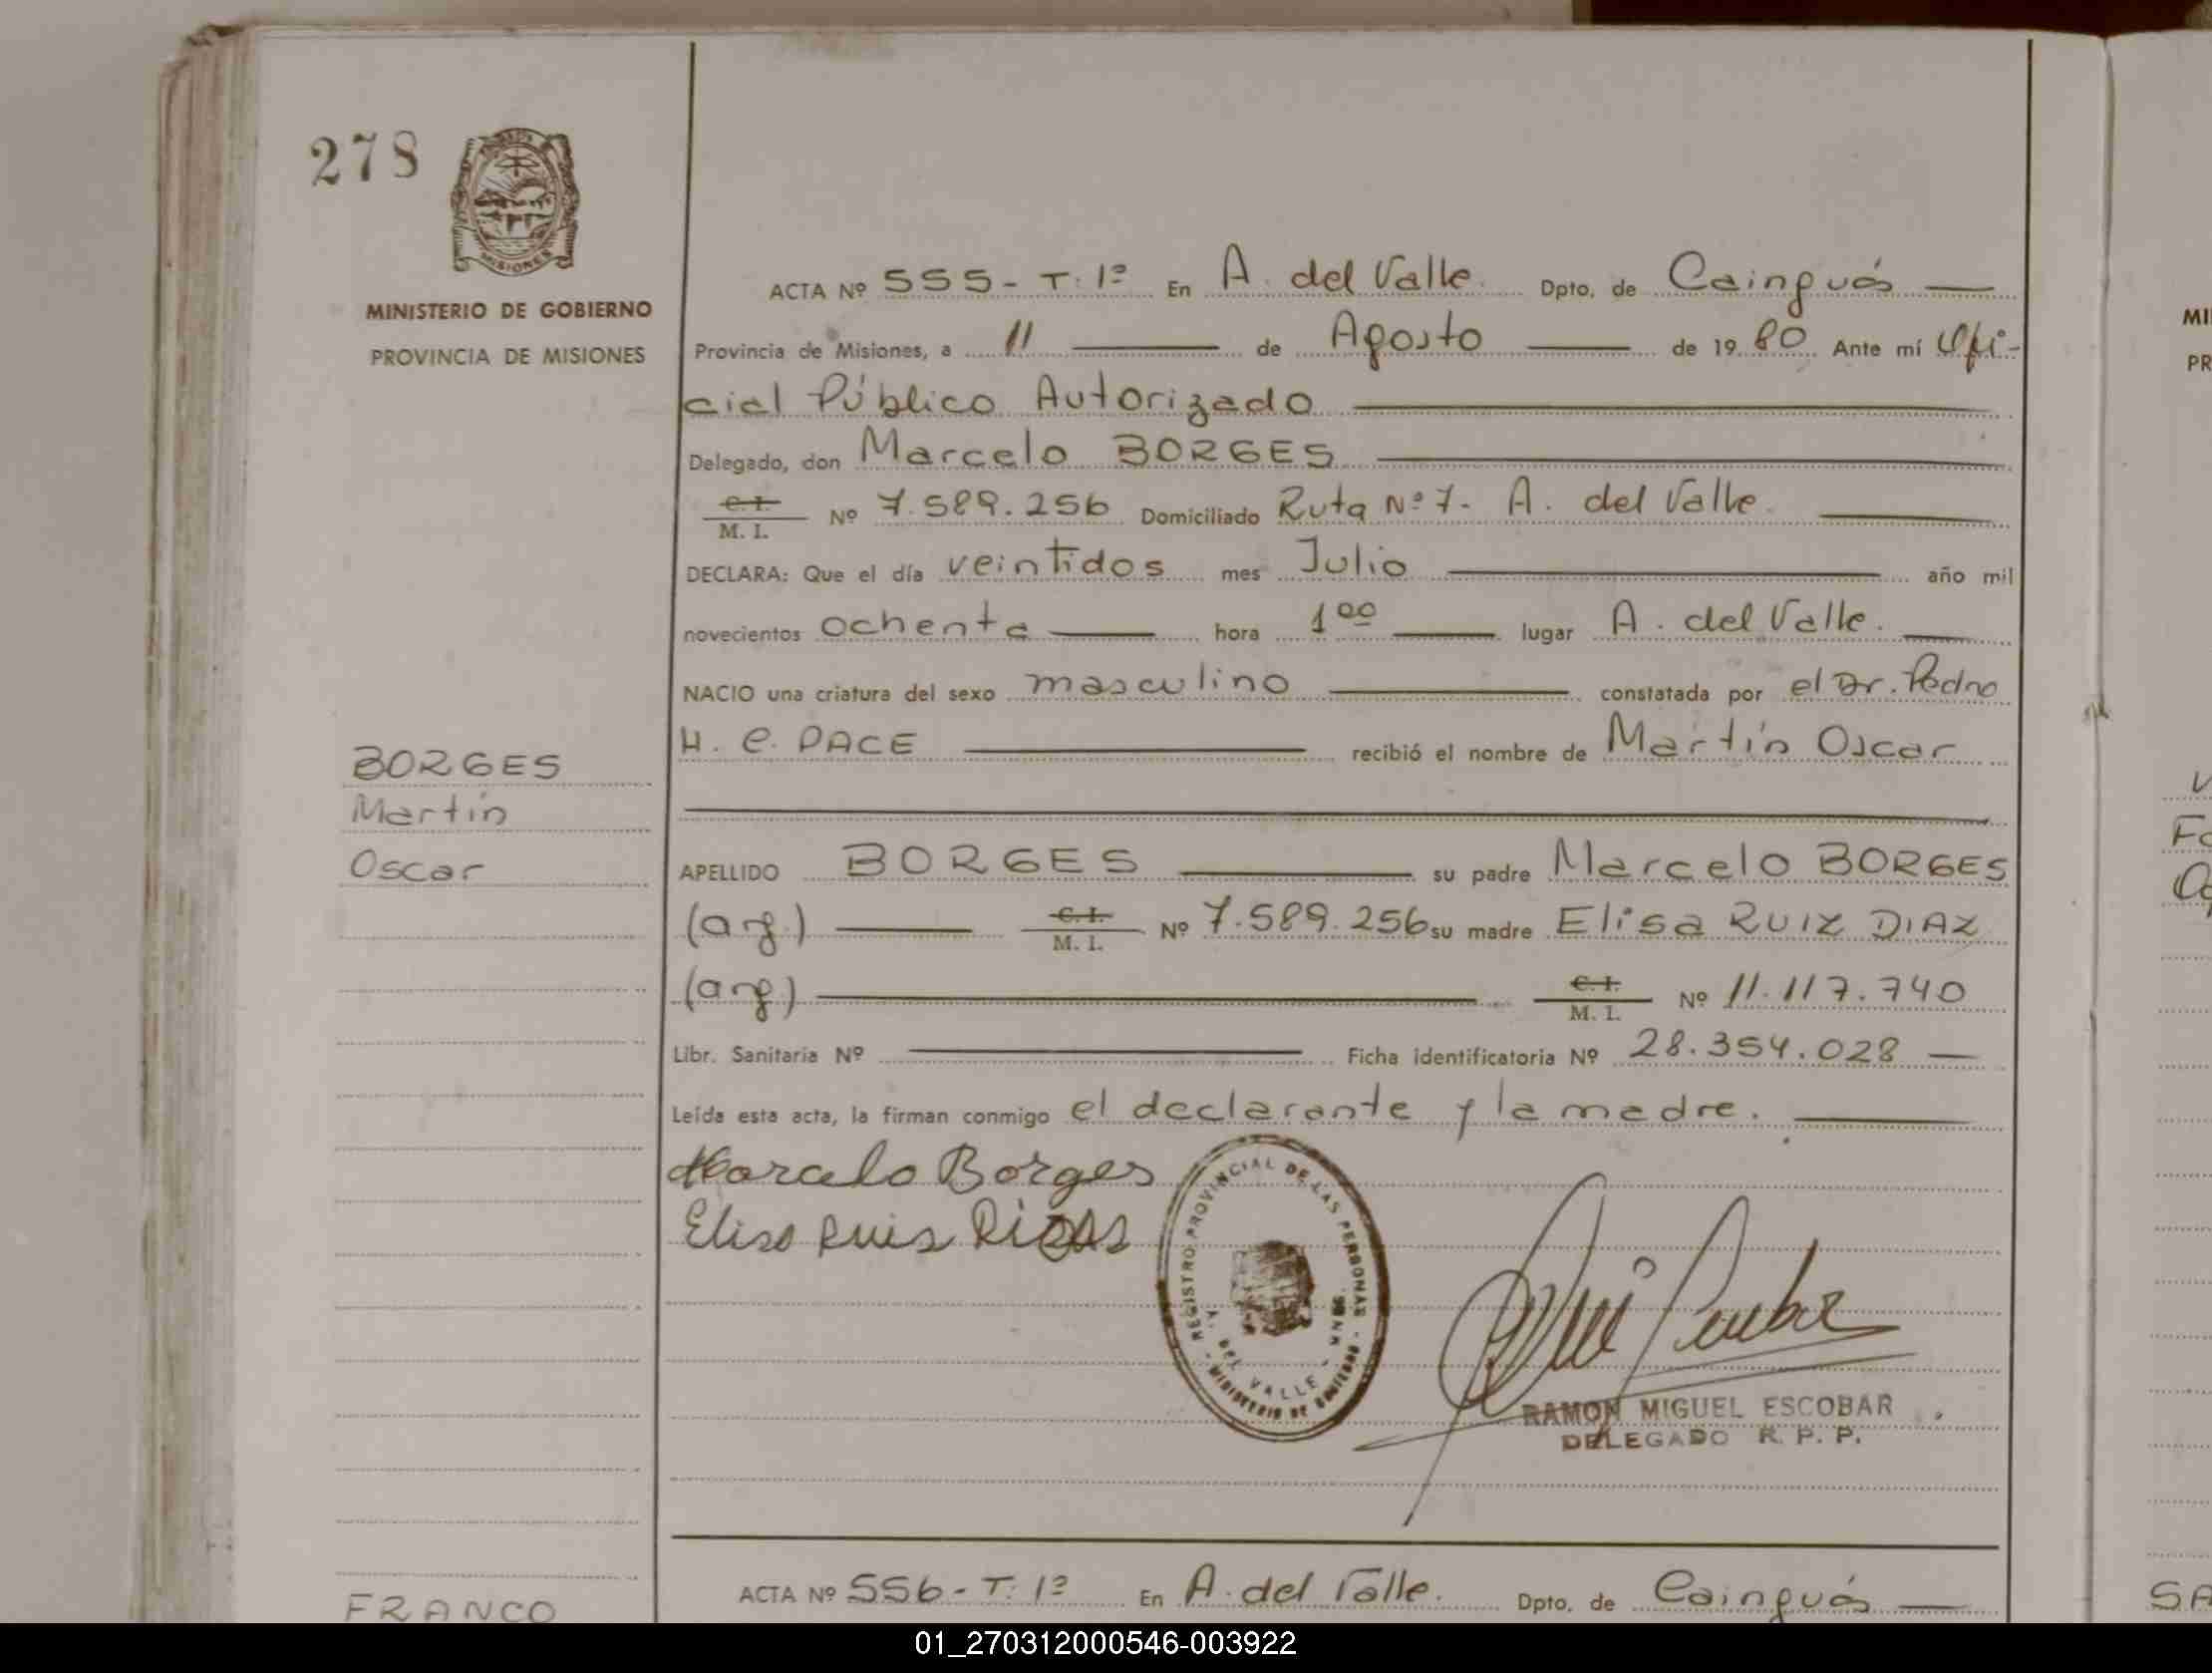 278
MISIONES
MINISTERIO DE GOBIERNO
PROVINCIA DE MISIONES
BORGES
Martín
Oscar
FRANCO
ACTA Nº 555 - T: 1º En A. del Valle. Dpto. de Cainguás
Provincia de Misiones, a 11 de Agosto de 1980 Ante mí Ofi-
cial Público Autorizado
Delegado, don Marcelo BORGES
C. I.
M. I. Nº 7.589.256 Domiciliado Ruta Nº 7 - A. del Valle.
DECLARA: Que el día veintidos mes Julio año mil
novecientos ochenta hora 1 00 lugar A. del Valle.
NACIO una criatura del sexo masculino constatada por el Dr. Pedro
H. C. PACE recibió el nombre de Martín Oscar
APELLIDO BORGES su padre Marcelo BORGES
(arg.) C. I.
M. I. Nº 7.589.256 su madre Elisa RUIZ DIAZ
(arg.) C. I.
M. I. Nº 11.117.740
Libr. Sanitaria Nº Ficha identificatoria Nº 28.354.028
Leída esta acta, la firman conmigo el declarante y la madre.
Marcelo Borges
Elisa Ruis
REGISTRO PROVINCIAL DE LAS PERSONAS
A. DEL VALLE - MNES.
MINISTERIO DE GOBIERNO
RAMON MIGUEL ESCOBAR
DELEGADO R. P. P.
ACTA Nº 556 - T: 1º En A. del Valle. Dpto. de Cainguás
MI
PR
SA
01_270312000546-003922